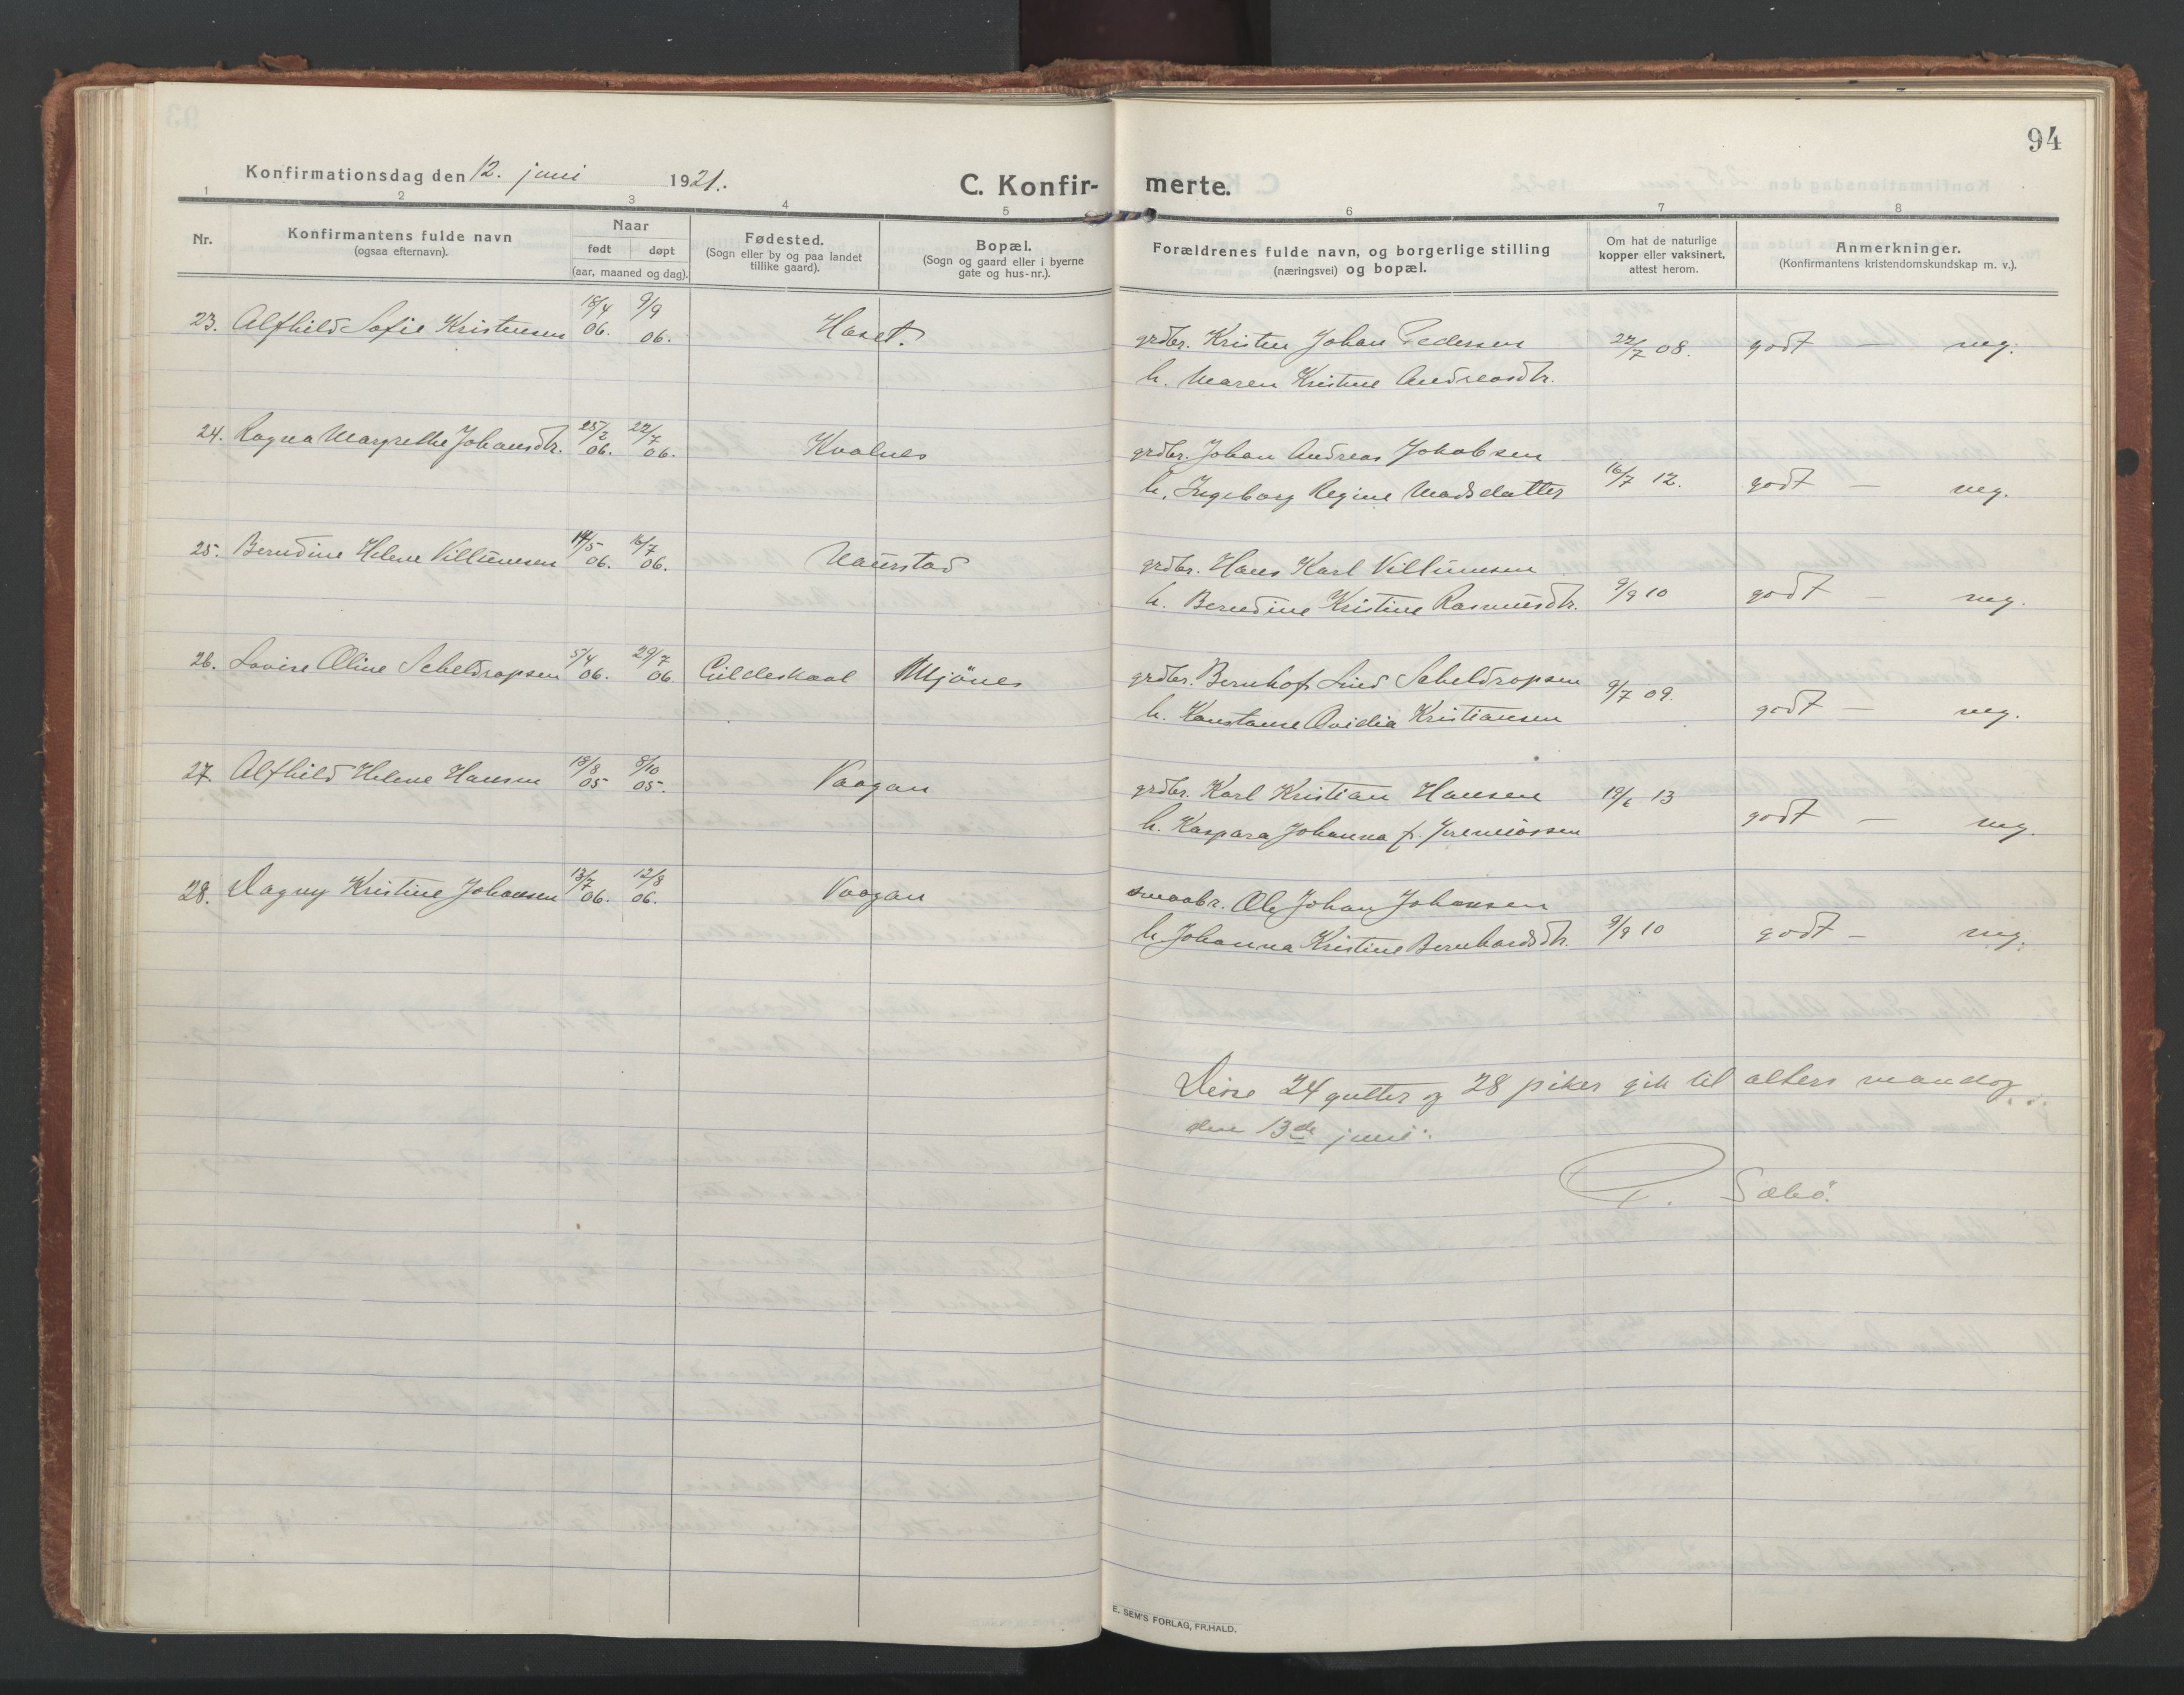 94
Konfirmationsdag den 12. juni 1921.
C. Konfir- merte.
1 2 3 4 5 6 7 8
Nr.
Konfirmantens fulde navn
(ogsaa efternavn).
Naar
født døpt
(aar, maaned og dag).
Fødested.
(Sogn eller by og paa landet
tillike gaard).
Bopæl.
(Sogn og gaard eller i byerne
gate og hus-nr.).
Forældrenes fulde navn, og borgerlige stilling
(næringsvei) og bopæl.
Om hat de naturlige
kopper eller vaksinert,
attest herom.
Anmerkninger.
(Konfirmantens kristendomskundskap m. v.).
23. Alfhild Sofie Kristensen 18/4 06. 9/9 06. Haset. grdbr. Kristen Johan Pedersen 22/7 08. godt — meg.
h. Maren Kristine Andreasdtr.
24. Ragna Margrethe Johansdtr. 25/2 06. 22/7 06. Kvalnes grdbr. Johan Andreas Jakobsen
h. Ingeborg Regine Madsdatter 16/7 12. godt — meg.
25. Berndine Helene Villumsen 14/5 06. 16/7 06. Naurstad grdbr. Hans Karl Villumsen
h. Berndine Kristine Rasmusdtr. 9/9 10 godt — meg.
26. Lovise Oline Scheldropsen 5/4 06. 29/7 06. Gildeskaal Mjönes grdbr. Bernhof Lind Scheldropsen 9/7 09.
h. Konstanse Ovidia Kristiansen godt — meg.
27. Alfhild Helene Hansen 18/8 05 8/10 05. Vaagan grdbr. Karl Kristian Hansen 19/6 13
h. Kaspara Johanna f. Jeremiassen godt — meg.
28. Dagny Kristine Johansen 13/7 06. 12/8 06. Vaagan smaabr. Ole Johan Johansen
h. Johanna Kristine Bernhardsdtr. 9/9 10 godt — meg.
Disse 24 gutter og 28 piker gik til alters mandag
den 13de juni.
P. Sæbö.
E. SEM'S FORLAG, FR.HALD.